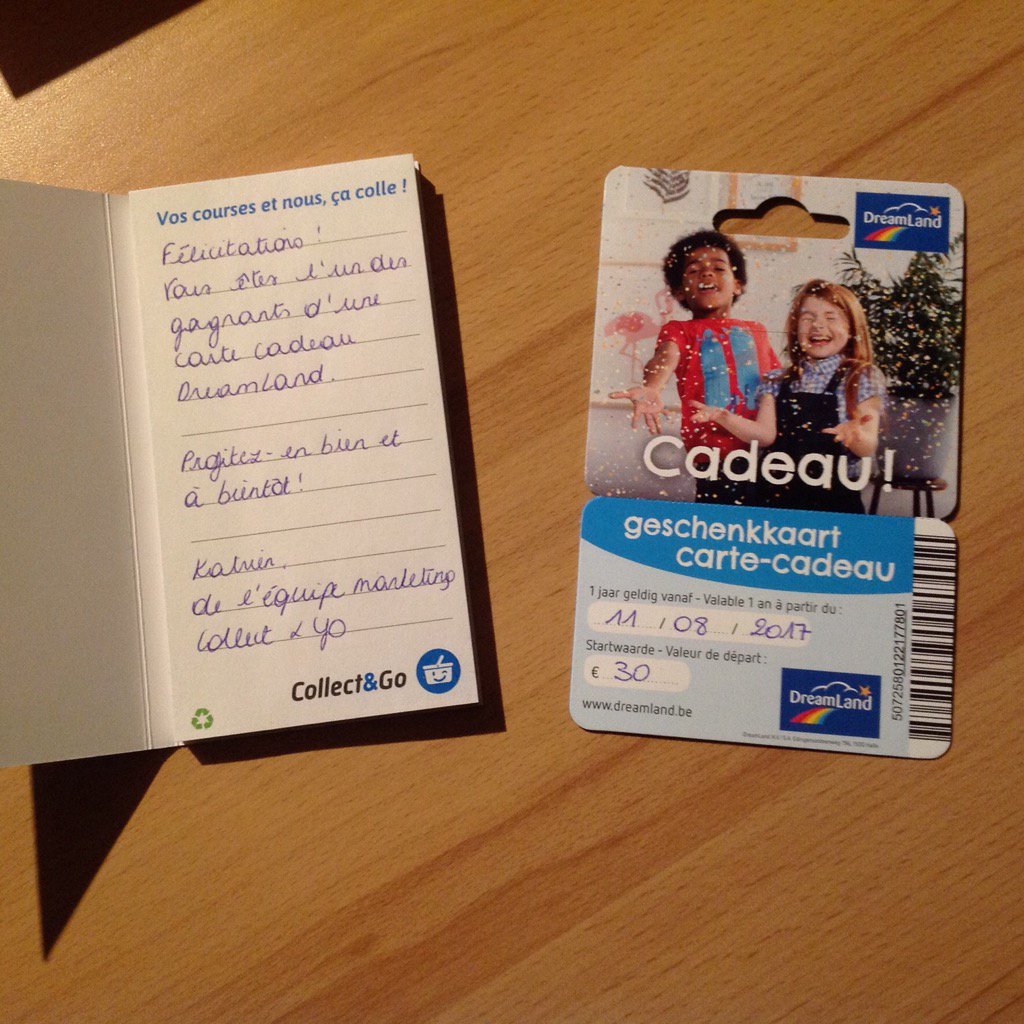 Vos courses et nous, ça colle !
Félicitations !
Vous êtes l'un des
gagnants d'une
carte cadeau
DreamLand.
Profitez-en bien et
à bientôt !
Katrien,
de l'équipe marketing
Collect & Go
Collect&Go
DreamLand
Cadeau!
geschenkkaart
carte-cadeau
1 jaar geldig vanaf - Valable 1 an à partir du :
11 / 08 / 2017
Startwaarde - Valeur de départ :
€ 30
www.dreamland.be
DreamLand
5072580122177801